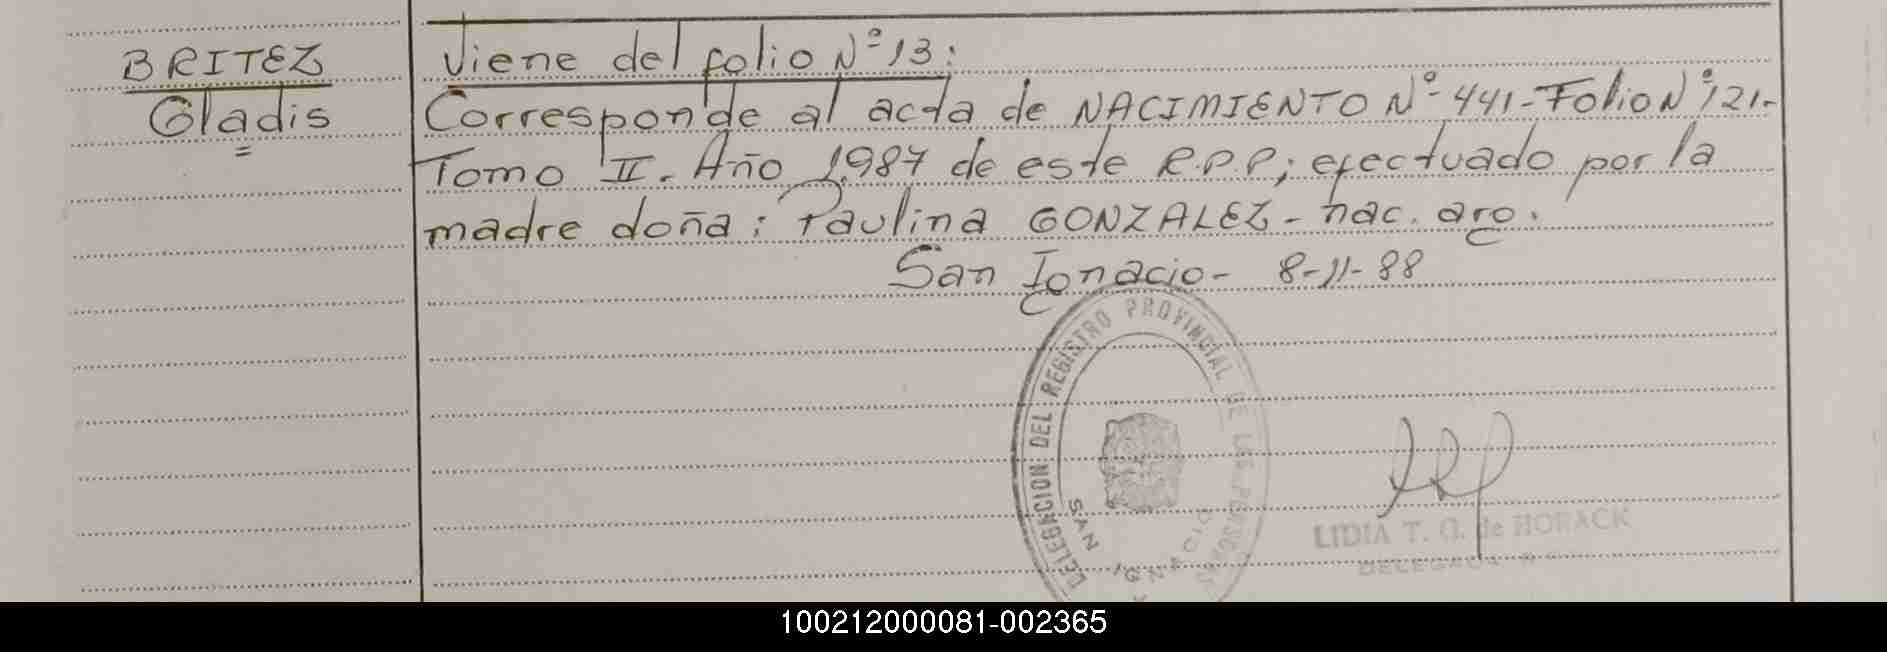 BRITEZ
Gladis
=
Viene del folio Nº 13:
Corresponde al acta de NACIMIENTO Nº 441-Folio Nº 121-
Tomo II. Año 1.987 de este R.P.P; efectuado por la
madre doña: Paulina GONZALEZ - nac. arg.
San Ignacio - 8-11-88
DELEGACION DEL REGISTRO PROVINCIAL DE LAS PERSONAS
SAN IGNACIO
LIDIA T. G. de HORACK
DELEGADA
100212000081-002365